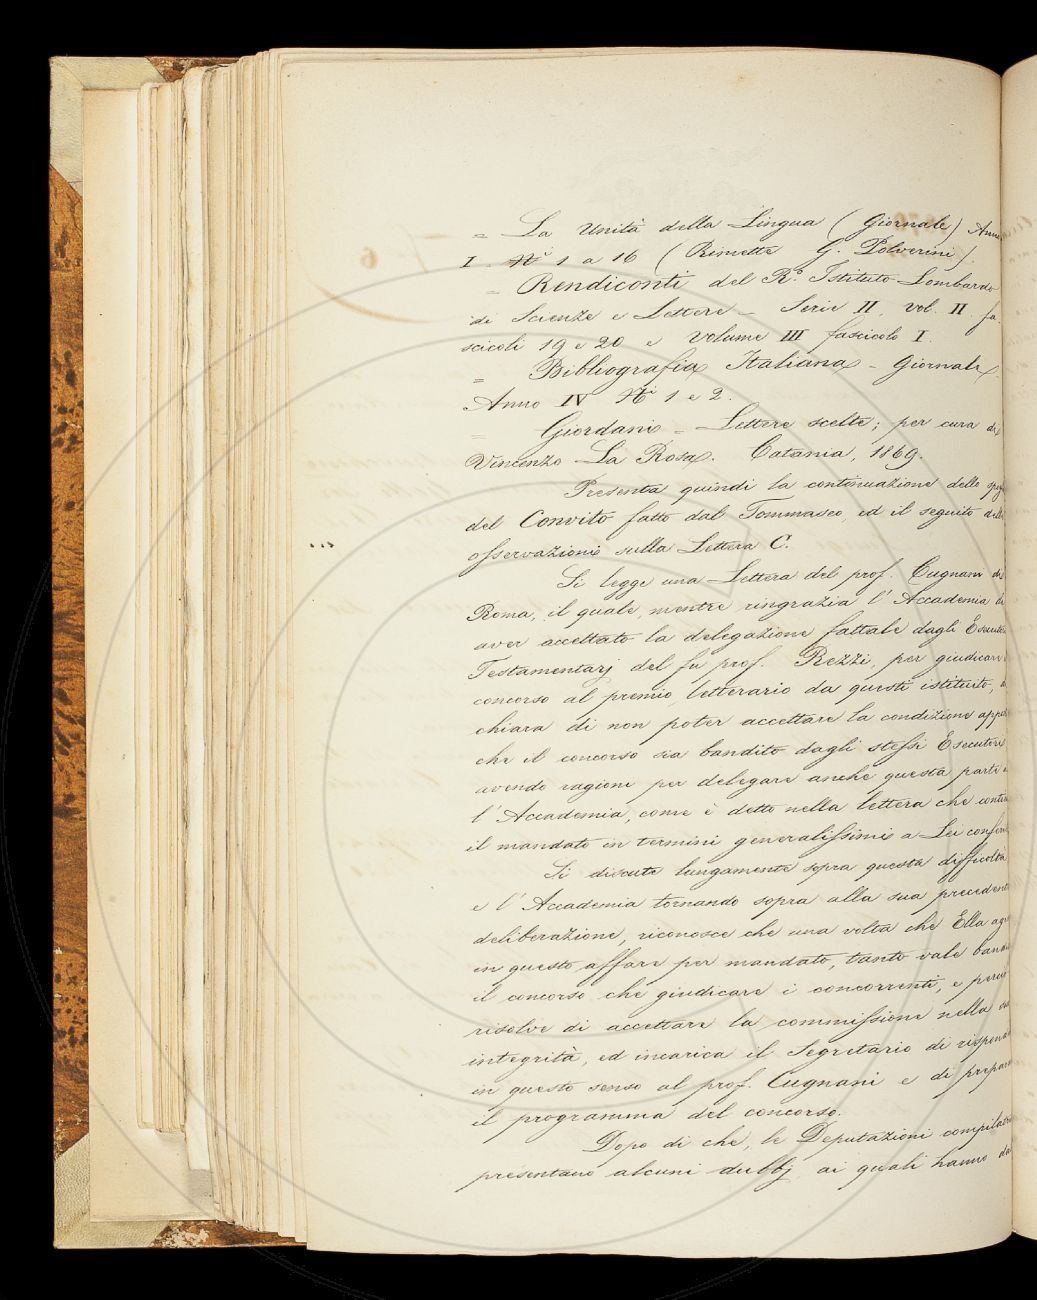 = La Unità della Lingua (Giornale) Anno
I - Ni 1 a 16 (Rimette G. Polverini).
= Rendiconti del R.o Istituto Lombardo
di Scienze e Lettere - Serie II. vol. II. fa-
scicoli 19 e 20 e volume III fascicolo I.
= Bibliografia Italiana - Giornale -
Anno IV Ni 1 e 2.
= Giordani - Lettere scelte; per cura di
Vincenzo La Rosa. Catania, 1869.
Presenta quindi la continuazione dello spo
del Convito fatto dal Tommaseo, ed il seguito delle
osservazioni sulla Lettera C.
Si legge una Lettera del prof. Cugnani di
Roma, il quale, mentre ringrazia l'Accademia di
aver accettato la delegazione fattale dagli Esecuto
Testamentarj del fu prof. Rezzi, per giudicare
concorso al premio letterario da questi istituito,
chiara di non poter accettare la condizione app
che il concorso sia bandito dagli stessi Esecutori
avendo ragione per delegare anche questa parte
l'Accademia, come è detto nella lettera che conte
il mandato in termini generalissimi a Lei confer
Si discute lungamente sopra questa difficoltà
e l'Accademia tornando sopra alla sua precedente
deliberazione, riconosce che una volta che Ella agi
in questo affare per mandato, tanto vale bandi
il concorso che giudicare i concorrenti, e perciò
risolve di accettare la commissione nella sua
integrità, ed incarica il Segretario di risponde
in questo senso al prof. Cugnani e di prepara
il programma del concorso.
Dopo di che, le Deputazioni compilatri
presentano alcuni dubbj, ai quali hanno da